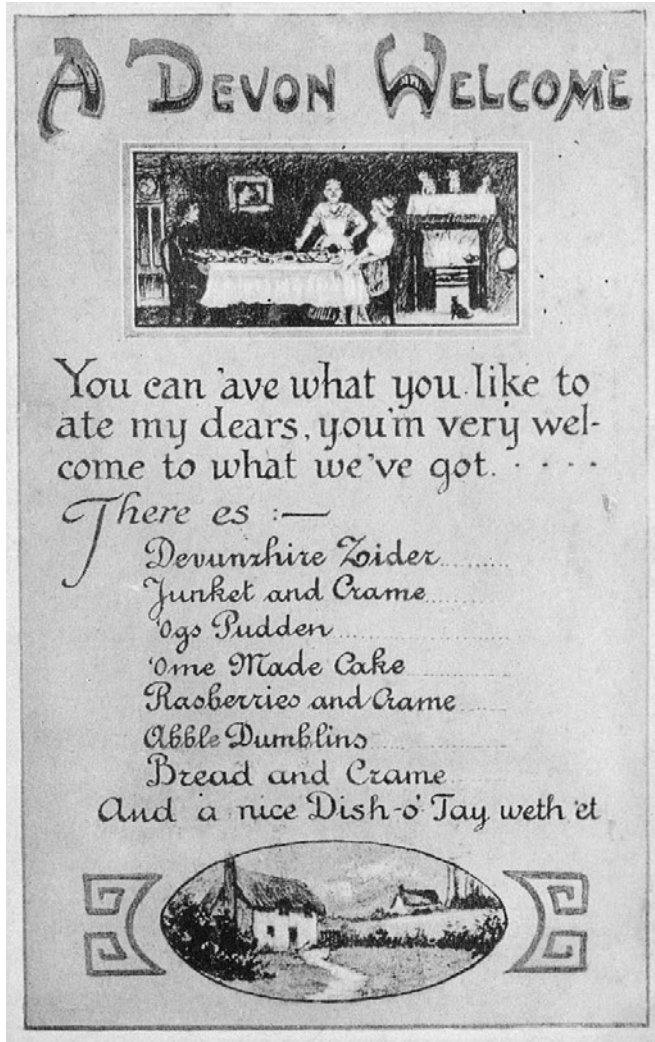 A DEVON WELCOME
You can 'ave what you like to
ate my dears, you'm very wel-
come to what we've got. . . . .
There es :—
Devunzhire Zider
Junket and Crame
'Ogs Pudden
'Ome Made Cake
Rasberries and Crame
Abble Dumblins
Bread and Crame
And a nice Dish-o' Tay weth 'et